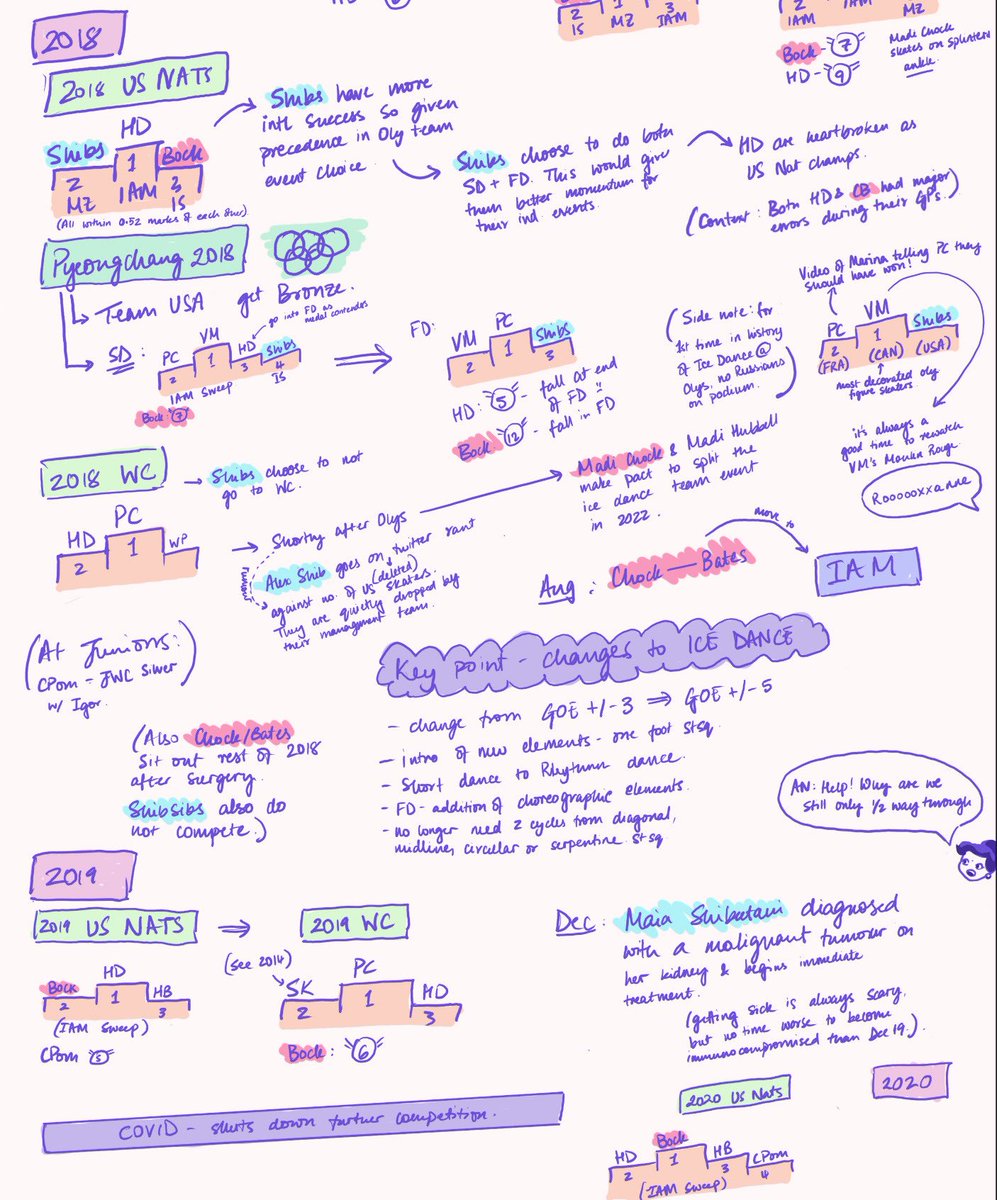 HD
2
1
3
IS
MZ
IAM
2
IAM
IAM
MZ
Bock - 7
HD - 9
Madi Chock
skates on splintered
ankle.
2018
2018 US NATS
HD
Shibs
1
Bock
2
IAM
3
MZ
IS
(All within 0.52 marks of each other)
Shibs have more
intl success so given
precedence in Oly team
event choice.
Shibs choose to do both
SD + FD. This would give
them better momentum for
their ind. events.
HD are heartbroken as
US Nat champs.
(Context: Both HD & CB had major
errors during their GPs.)
Pyeongchang 2018
Team USA get Bronze.
SD:
go into FD as
medal contenders
VM
PC
HD
Shibs
2
1
3
4
IS
IAM sweep
Bock 7
FD:
PC
VM
Shibs
2
1
3
HD: 5 - fall at end
of FD !!
Bock 12 - fall in FD
(Side note: for
1st time in history
of Ice Dance @
Olys, no Russians
on podium.)
Video of Marina telling PC they
should have won!
VM
PC
Shibs
2
1
3
(FRA)
(CAN)
(USA)
most decorated oly
figure skaters
it's always a
good time to rewatch
VM's Moulin Rouge.
Roooooxxanne
2018 WC
Shibs choose to not
go to WC.
PC
HD
WP
2
1
Shortly after Olys
rumour
Alex Shib goes on twitter rant
(deleted)
against no. of US skaters.
They are quietly dropped by
their managment team.
Madi Chock & Madi Hubbell
make pact to split the
ice dance team event
in 2022.
Aug: Chock — Bates
move to
IAM
(At Juniors:
CPom - JWC Silver
w/ Igor.)
(Also Chock/Bates
Sit out rest of 2018
after surgery.
Shibsibs also do
not compete.)
Key point - changes to ICE DANCE
- change from GOE +/-3 ⟹ GOE +/-5
- intro of new elements - one foot StSq
- Short dance to Rhythm dance.
- FD - addition of choreographic elements.
- no longer need 2 cycles from diagonal,
midline, circular or serpentine StSq
AN: Help! Why are we
still only 1/2 way through
2019
2019 US NATS
2019 WC
HD
Bock
HB
2
1
3
(IAM Sweep)
CPom 5
(See 2014)
PC
SK
HD
2
1
3
Bock: 6
Dec: Maia Shibutani diagnosed
with a malignant tumour on
her kidney & begins immediate
treatment.
(getting sick is always scary,
but no time worse to become
immunocompromised than Dec 19.)
COVID - shuts down further competition.
2020
2020 US Nats
Bock
HD
HB
CPom
2
1
3
4
(IAM Sweep)